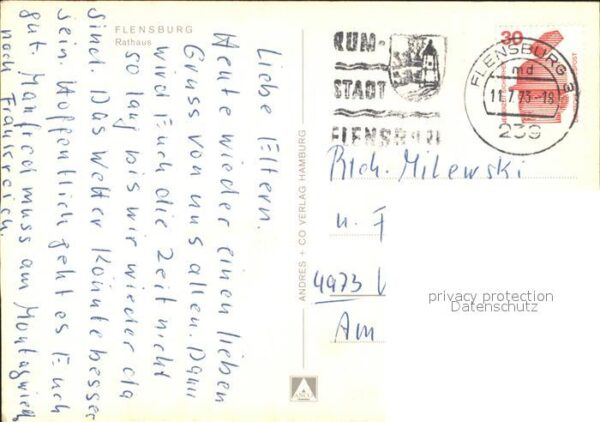 FLENSBURG
Rathaus
Liebe Eltern.
Heute wieder einen lieben
Gruss von uns allen. Dann
wird Euch die Zeit nicht
so lang bis wir wieder da
sind. Das Wetter könnte besser
sein. Hoffentlich geht es Euch
gut. Manfred muss am Montag wieder
nach Frankreich.
ANDRES + CO VERLAG HAMBURG
RUM-
STADT
FLENSBURG
FLENSBURG 3
md
11.7.73-18
239
30
Rich. Milewski
u. F
4973 V
Am
privacy protection
Datenschutz